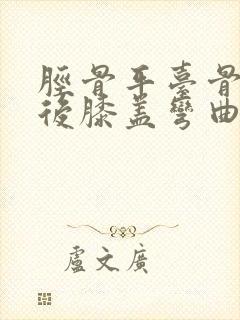 脛骨平臺骨
後膝蓋彎曲
盧文廣